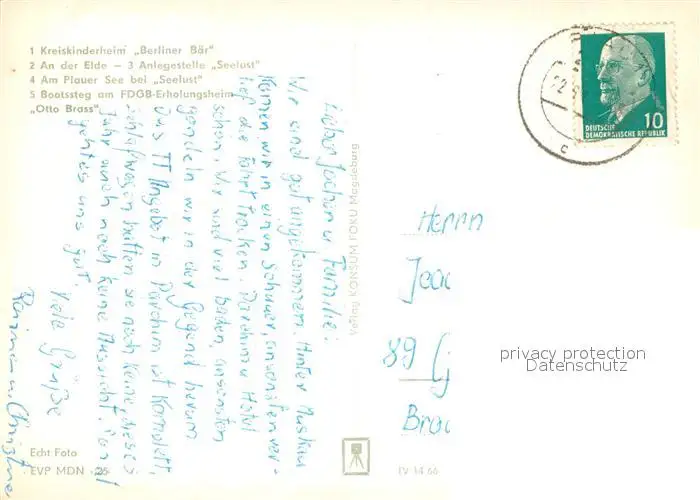 1 Kreiskinderheim „Berliner Bär"
2 An der Elde — 3 Anlegestelle „Seelust"
4 Am Plauer See bei „Seelust"
5 Bootssteg am FDGB-Erholungsheim
„Otto Brass"
Lieber Jochen u. Familie!
Wir sind gut angekommen. Hinter
kamen wir in einen Schauer, ansonsten ver-
lief die Fahrt trocken. Parchim u. Hotel
schön. Wir sind viel baden, ansonsten
gondeln wir in der Gegend herum
Das TT Angebot in Parchim ist komplett,
Schlafwagen hatten sie noch keine dieses
Jahr auch noch keine Aussicht. Sonst
geht es uns gut.
Viele Grüße
Echt Foto
EVP MDN -,25
Verlag KONSUM FOKU Magdeburg
IV 14 66
DEUTSCHE
DEMOKRATISCHE REPUBLIK
10
c
Herrn
89
privacy protection
Datenschutz